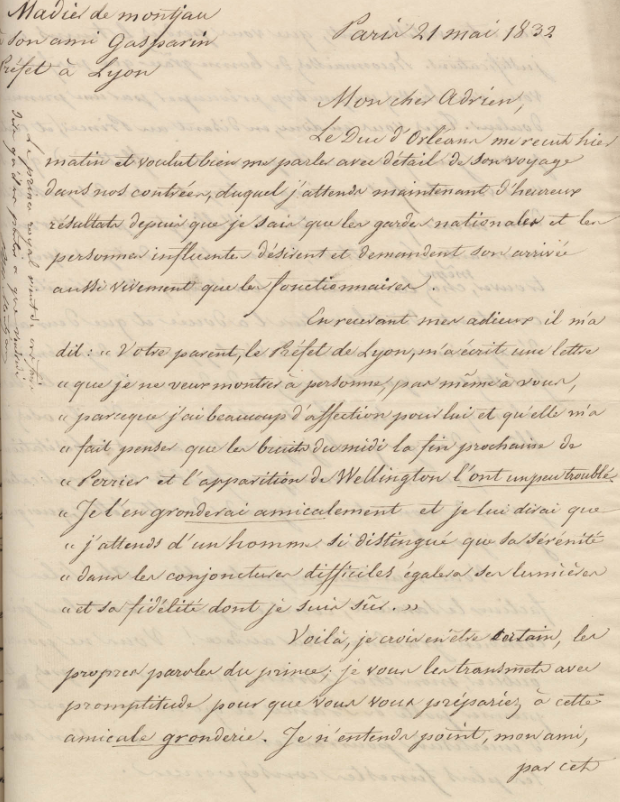 Madier de montjau
à son ami Gasparin
Préfet à Lyon
Paris 21 mai 1832
Mon cher Adrien,
Le Duc d'Orléans me reçut hier
matin et voulut bien me parler avec détail de son voyage
dans nos contrées, duquel j'attends maintenant d'heureux
résultats depuis que je sais que les gardes nationales et les
personnes influentes désirent et demandent son arrivée
aussi vivement que les fonctionnaires.
En recevant mes adieux il m'a
dit : « Votre parent, le Préfet de Lyon, m'a écrit une lettre
« que je ne veux montrer à personne, pas même à vous,
« parceque j'ai beaucoup d'affection pour lui et qu'elle m'a
« fait penser que les bruits du midi la fin prochaine de
« Perrier et l'apparition de Wellington l'ont un peu troublé.
« Je l'en gronderai amicalement et je lui dirai que
« j'attends d'un homme si distingué que sa sérénité
« dans les conjonctures difficiles égalera ses lumières
« et sa fidélité dont je suis sûr. »
Voilà, je crois en être certain, les
propres paroles du prince; je vous les transmets avec
promptitude pour que vous vous prépariez à cette
amicale gronderie. Je n'entends point, mon ami,
par cet